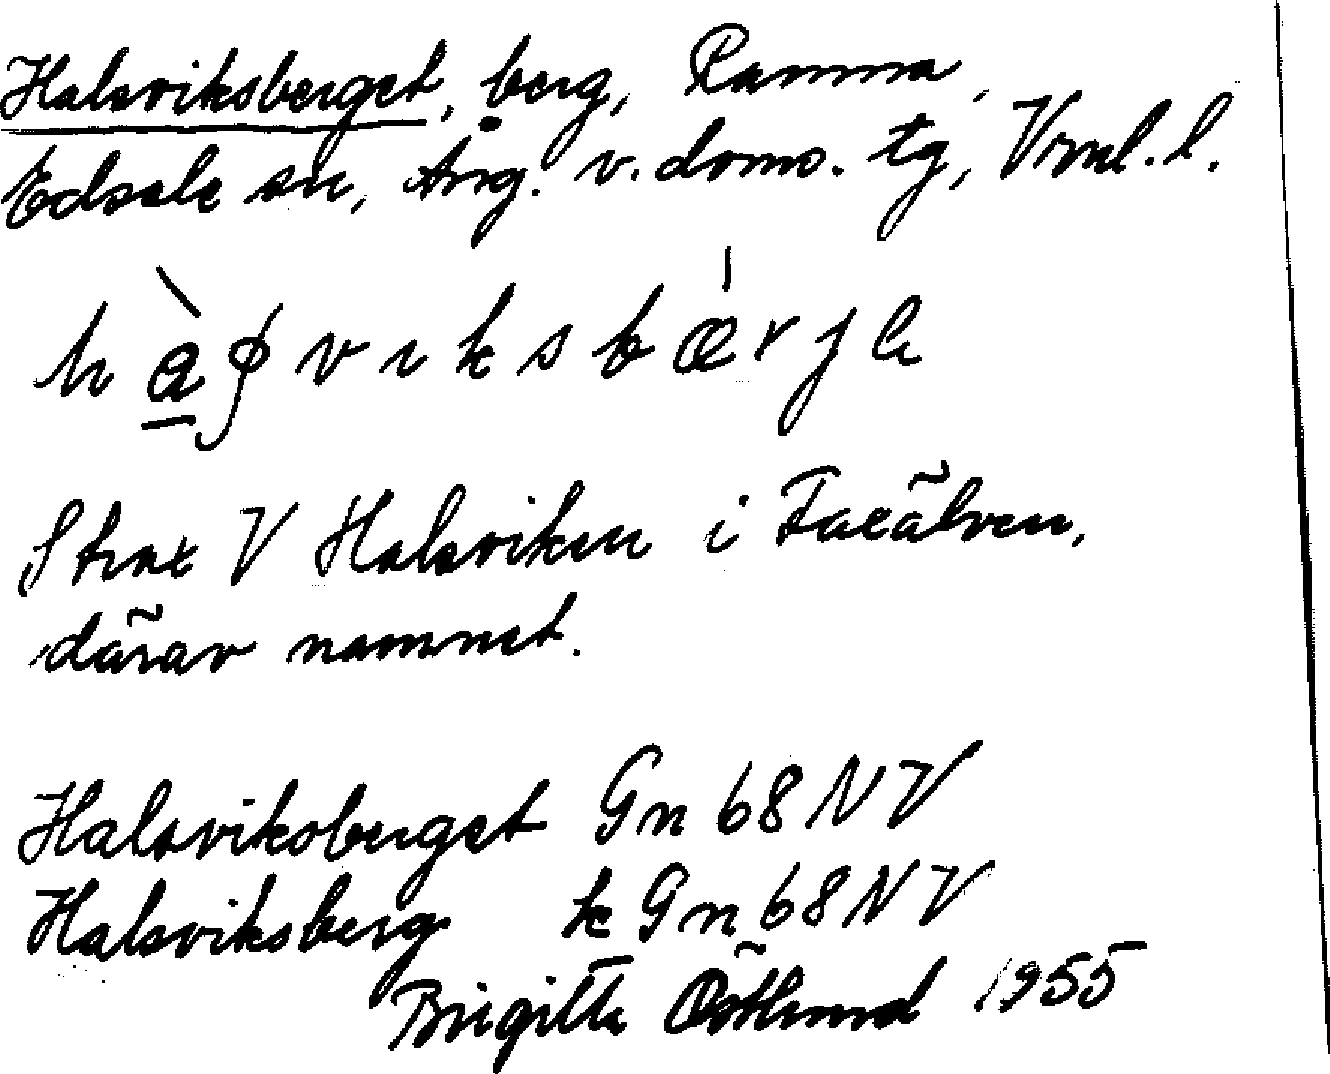 Halsviksberget, berg, Ramna,
Edsele sn, Ång. v. doms. tg, Vrnl. l.
Strax V Halsviken i Faxälven,
därav namnet.
Halsviksberget Gn 68 NV
Halsviksberg k Gn 68 NV
Birgitta Östlund 1955